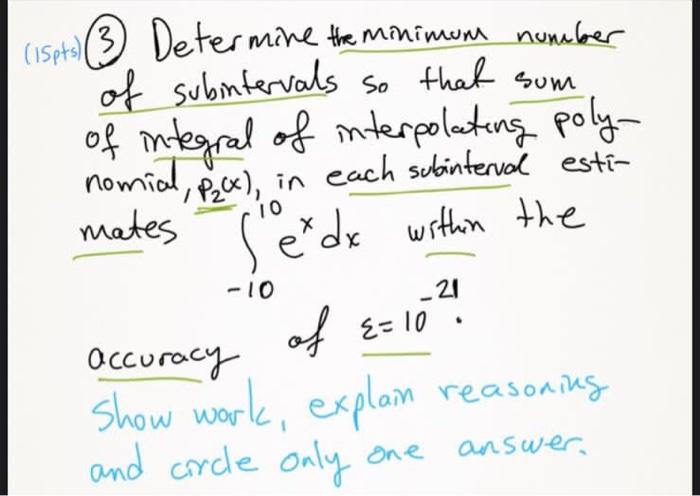 (15pts) ③ Determine the minimum number
of subintervals so that sum
of integral of interpolating poly-
nomial, p₂(x), in each subinterval esti-
mates ∫₋₁₀¹⁰ eˣ dx within the
accuracy of ε = 10⁻²¹.
Show work, explain reasoning
and circle only one answer.